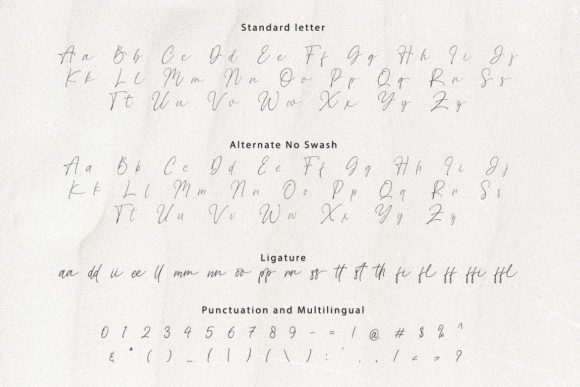 Standard letter
Aa Bb Cc Dd Ee Ff Gg Hh Ii Jj
Kk Ll Mm Nn Oo Pp Qq Rr Ss
Tt Uu Vv Ww Xx Yy Zz
Alternate No Swash
Aa Bb Cc Dd Ee Ff Gg Hh Ii Jj
Kk Ll Mm Nn Oo Pp Qq Rr Ss
Tt Uu Vv Ww Xx Yy Zz
Ligature
aa dd ii ee ll mm nn oo pp rr ss tt st th fi fl ff ffi ffl
Punctuation and Multilingual
0 1 2 3 4 5 6 7 8 9 - = / @ # $ % ^
& * ( ) _ { | } ( \ ) : ' . . / < > ?